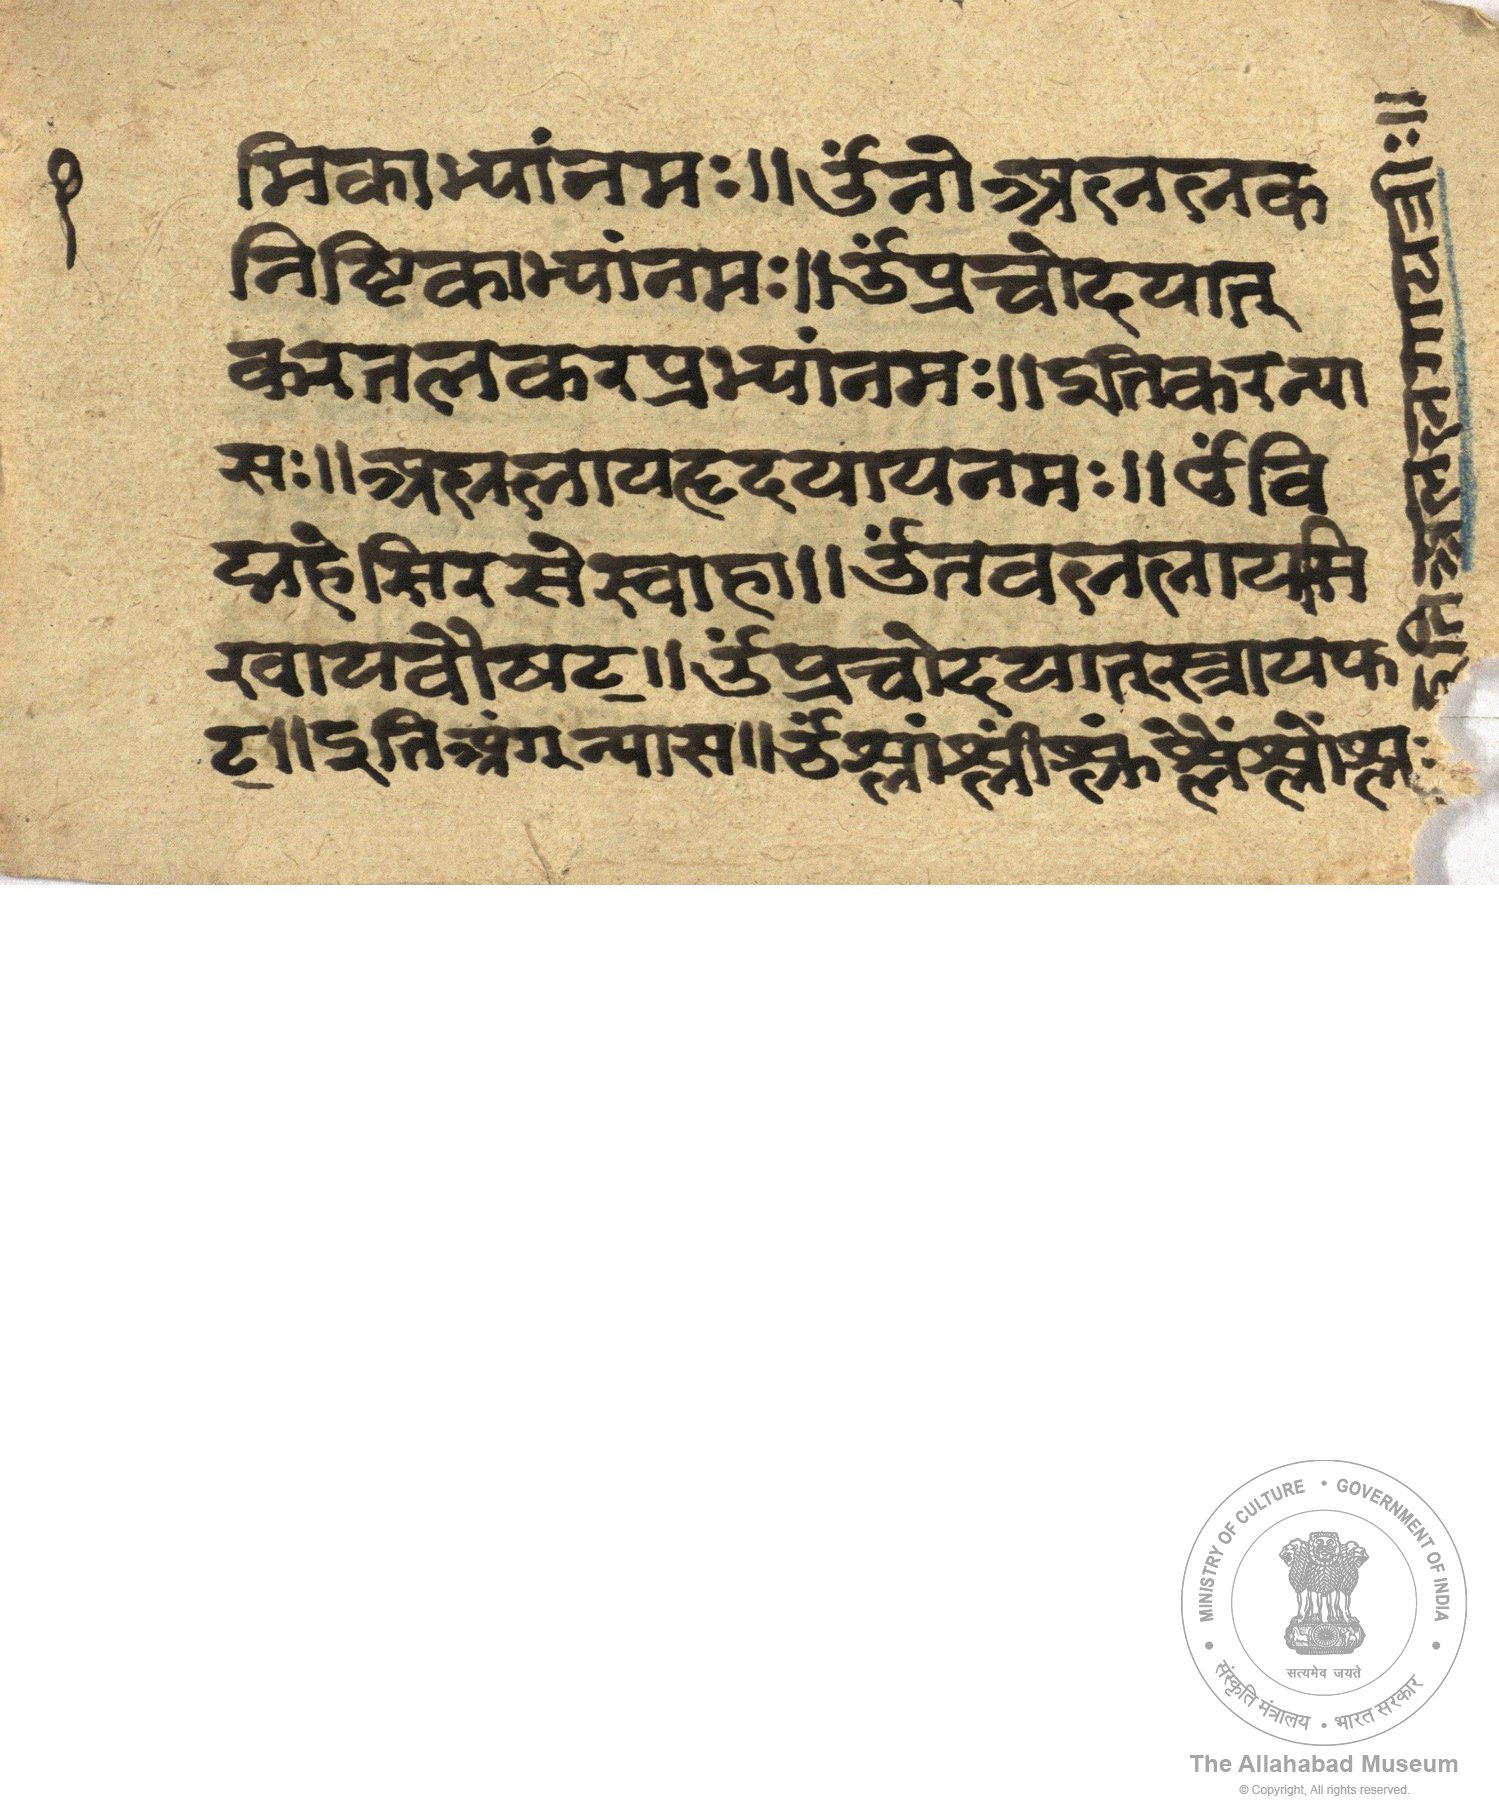 १
मिकाभ्यांनमः॥ॐनोअत्नत्नक
निष्टिकाभ्यांनमः॥ॐप्रचोदयात्
करतलकरप्रभ्यांनमः॥इतिकरन्या
सः॥अत्नत्नायहृदयायनमः॥ॐवि
द्महेसिरसेस्वाहा॥ॐतवत्नत्नायसि
खायवौषट्॥ॐप्रचोदयात्स्त्रायफ
ट्॥इतिअंगन्यास॥ॐश्लांश्लींश्लूं श्लैंश्लोंश्लः
MINISTRY OF CULTURE • GOVERNMENT OF INDIA
संस्कृति मंत्रालय • भारत सरकार
सत्यमेव जयते
The Allahabad Museum
© Copyright, All rights reserved.